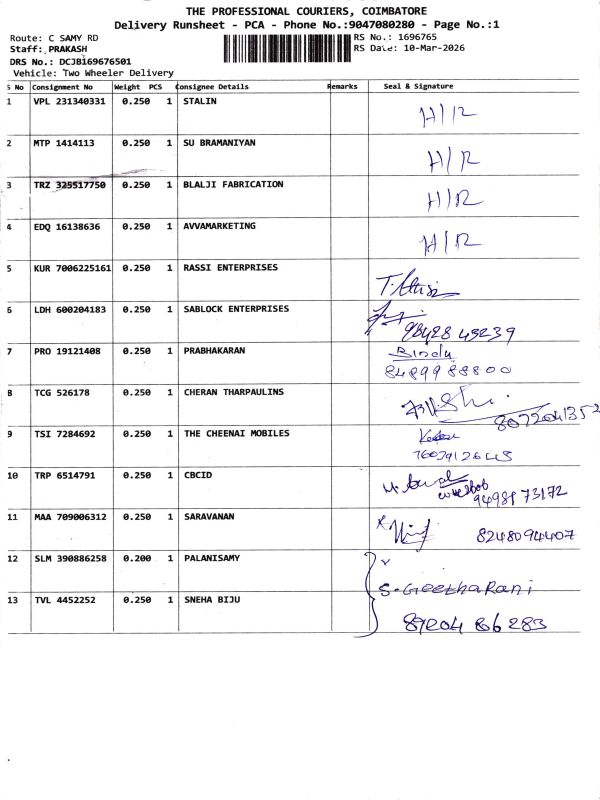 THE PROFESSIONAL COURIERS, COIMBATORE
Delivery Runsheet - PCA - Phone No.:9047080280 - Page No.:1
Route: C SAMY RD
RS No.: 1696765
Staff: PRAKASH
RS Date: 10-Mar-2026
DRS No.: DCJBI69676501
Vehicle: Two Wheeler Delivery
S No Consignment No Weight PCS Consignee Details Remarks Seal & Signature
1 VPL 231340331 0.250 1 STALIN H/R
2 MTP 1414113 0.250 1 SU BRAMANIYAN H/R
3 TRZ 325517750 0.250 1 BLALJI FABRICATION H/R
4 EDQ 16138636 0.250 1 AVVAMARKETING H/R
5 KUR 7006225161 0.250 1 RASSI ENTERPRISES
6 LDH 600204183 0.250 1 SABLOCK ENTERPRISES
98428 43239
7 PRO 19121408 0.250 1 PRABHAKARAN Bindu
8489988800
8 TCG 526178 0.250 1 CHERAN THARPAULINS
8072041352
9 TSI 7284692 0.250 1 THE CHEENAI MOBILES
10 TRP 6514791 0.250 1 CBCID
94981 73172
11 MAA 709006312 0.250 1 SARAVANAN
8248094407
12 SLM 390886258 0.200 1 PALANISAMY
S. Geetha Rani
13 TVL 4452252 0.250 1 SNEHA BIJU
89204 86283